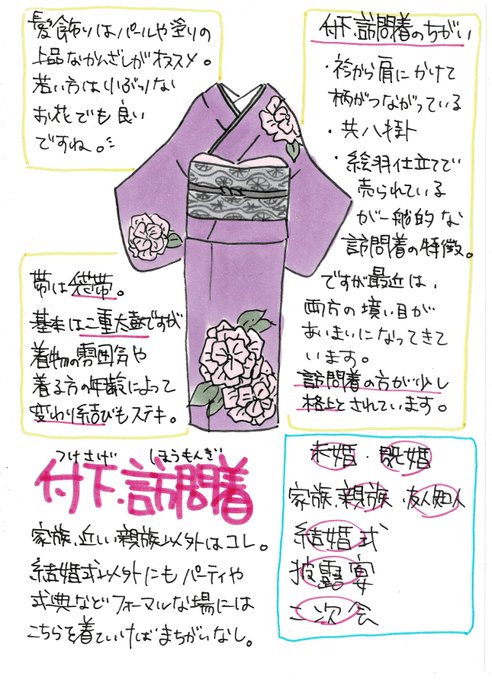 髪飾りはパールや塗りの
上品なかんざしがオススメ。
若い方は小ぶりな
お花でも良い
ですね。
付下.訪問着のちがい
・衿から肩にかけて
柄がつながっている
・共八掛
・絵羽仕立てで
売られている
が一般的な
訪問着の特徴。
ですが最近は、
両方の境い目が
あいまいになってきて
います。
訪問着の方が少し
格上とされています。
帯は袋帯。
基本は二重太鼓ですが
着物の雰囲気や
着る方の年齢によって
変わり結びもステキ。
つけさげ しほうもんぎ
付下.訪問着
家族、近い親族以外はコレ。
結婚式以外にもパーティや
式典などフォーマルな場には
こちらを着ていけばまちがいなし。
未婚・既婚
家族.親族・友人知人
結婚式
披露宴
二次会